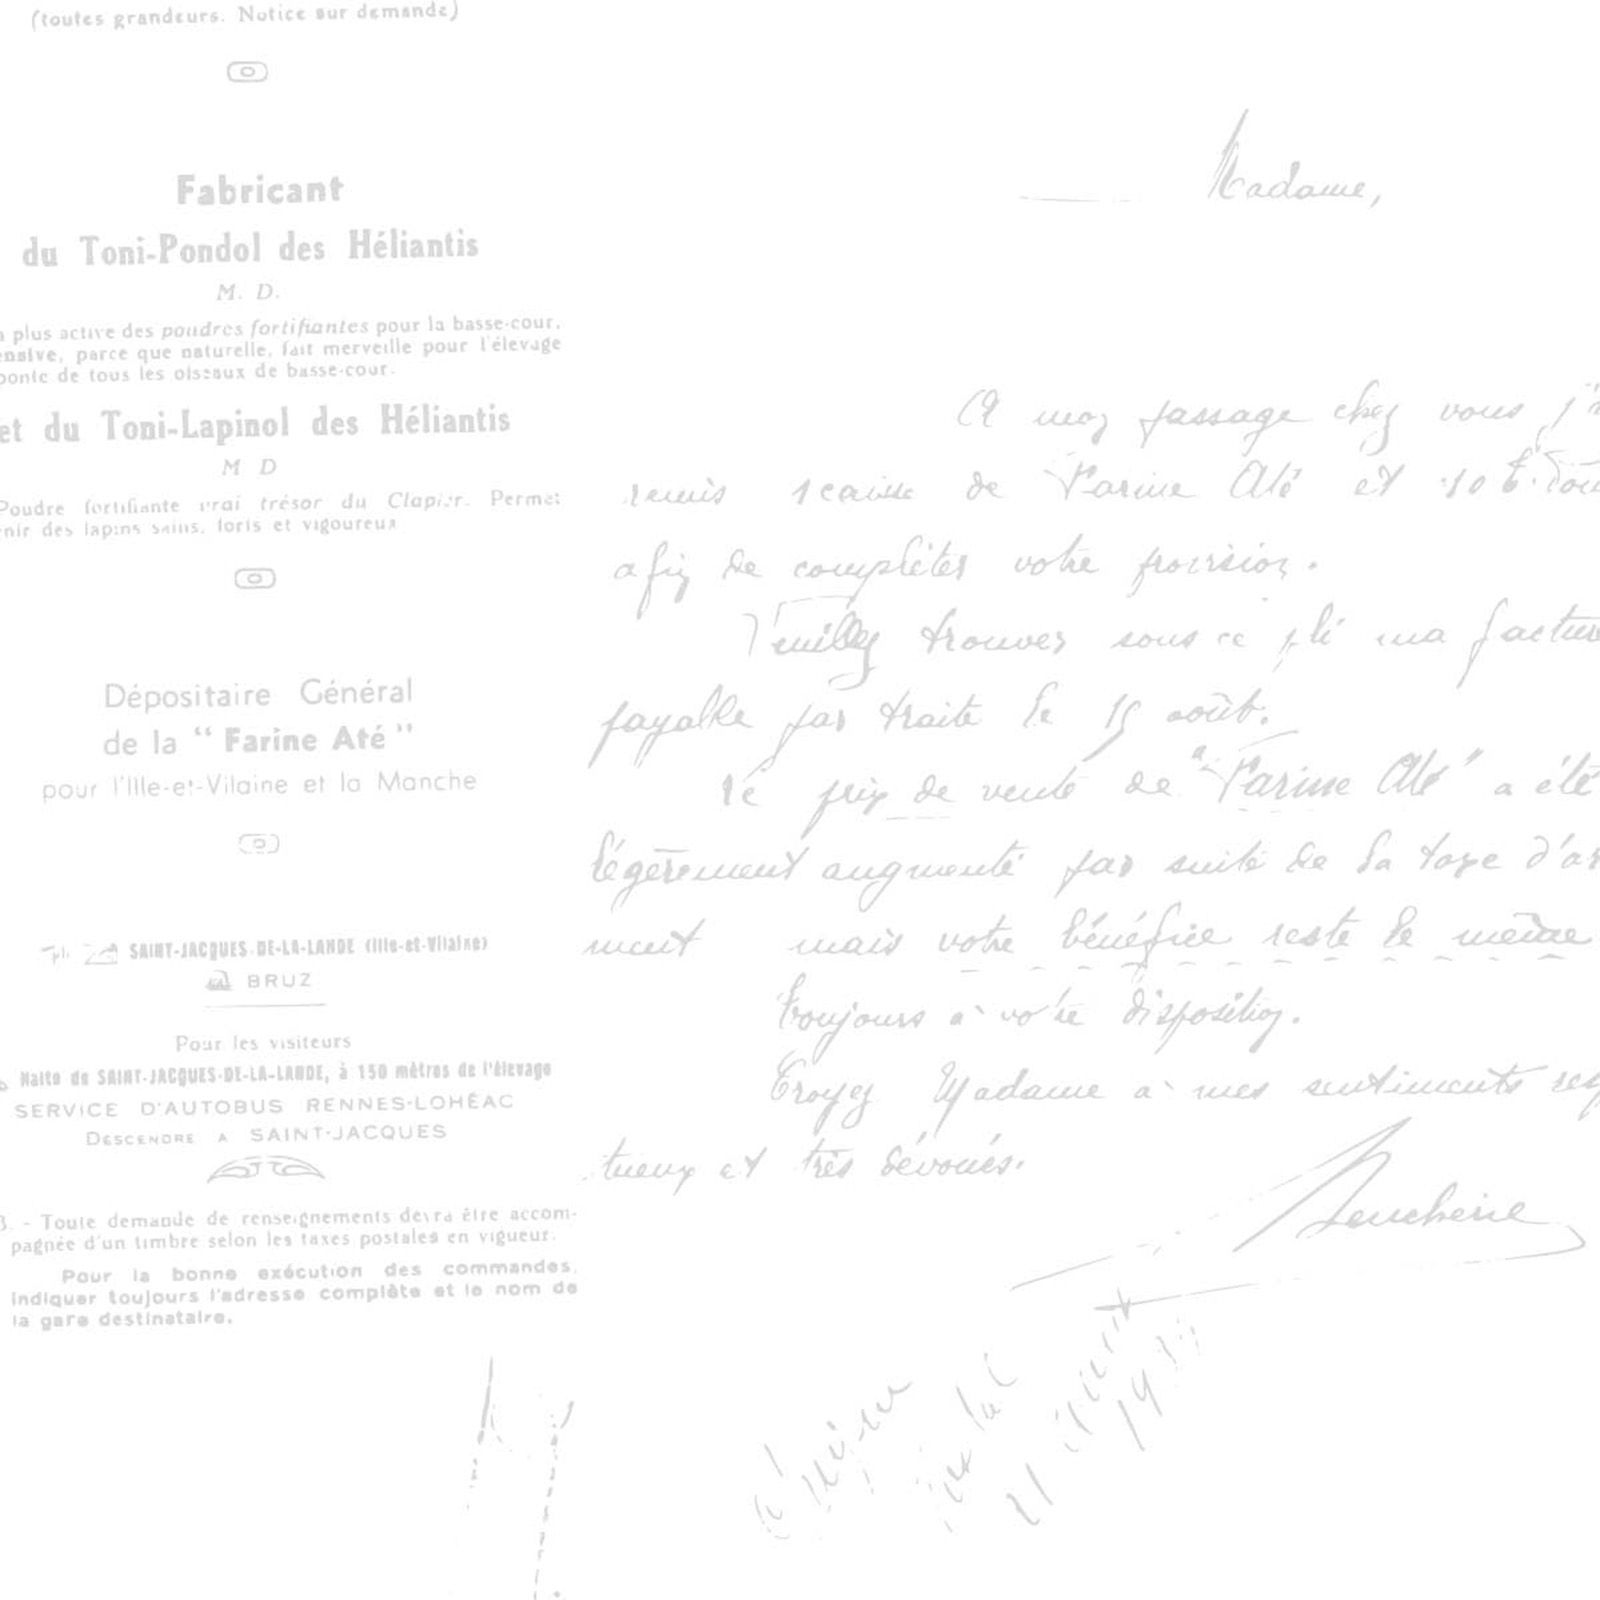 (toutes grandeurs. Notice sur demande)
Fabricant
du Toni-Pondol des Héliantis
M. D.
plus active des poudres fortifiantes pour la basse-cour,
ensive, parce que naturelle, fait merveille pour l'élevage
ponte de tous les oiseaux de basse-cour.
et du Toni-Lapinol des Héliantis
M D
Poudre fortifiante vrai trésor du Clapier. Permet
nir des lapins sains, forts et vigoureux
Dépositaire Général
de la "Farine Até"
pour l'Ille-et-Vilaine et la Manche
SAINT-JACQUES-DE-LA-LANDE (Ille-et-Vilaine)
BRUZ
Pour les visiteurs
Halte de SAINT-JACQUES-DE-LA-LANDE, à 150 mètres de l'élevage
SERVICE D'AUTOBUS RENNES-LOHÉAC
DESCENDRE A SAINT-JACQUES
B. - Toute demande de renseignements devra être accom-
pagnée d'un timbre selon les taxes postales en vigueur.
Pour la bonne exécution des commandes,
indiquer toujours l'adresse complète et le nom de
la gare destinataire.
Madame,
A mon passage chez vous j'
remis 1 caisse de Farine Até et 10 b.
afin de compléter votre provision.
Veuillez trouver sous ce pli ma facture
payable par traite le 15 août.
Le prix de vente de "Farine Até" a été
légèrement augmenté par suite de la taxe d'ar
ment mais votre bénéfice reste le même
Toujours à votre disposition.
Croyez Madame à mes sentiments resp
tueux et très dévoués.
21
19